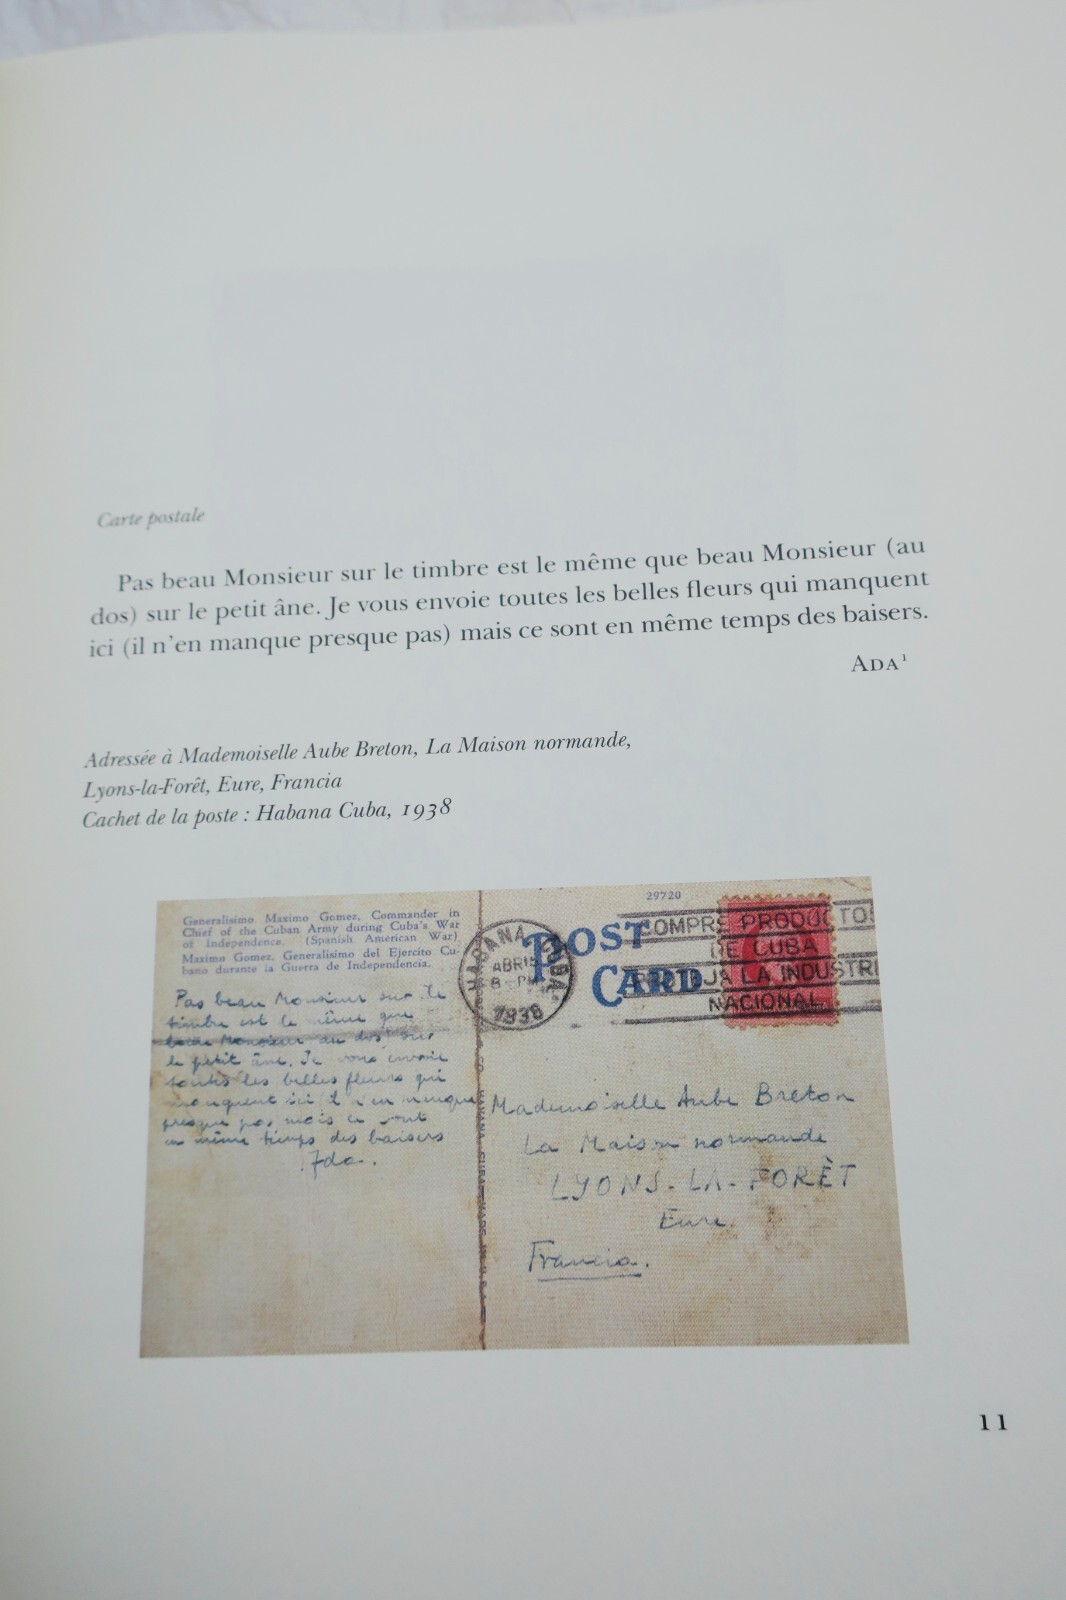 Carte postale
Pas beau Monsieur sur le timbre est le même que beau Monsieur (au
dos) sur le petit âne. Je vous envoie toutes les belles fleurs qui manquent
ici (il n'en manque presque pas) mais ce sont en même temps des baisers.
ADA¹
Adressée à Mademoiselle Aube Breton, La Maison normande,
Lyons-la-Forêt, Eure, Francia
Cachet de la poste : Habana Cuba, 1938
Generalisimo Maximo Gomez, Commander in
Chief of the Cuban Army during Cuba's War
of Independence. (Spanish American War)
Maximo Gomez, Generalisimo del Ejercito Cu-
bano durante la Guerra de Independencia.
Pas beau Monsieur sur le
timbre est le même que
beau Monsieur au dos sur
le petit âne. Je vous envoie
toutes les belles fleurs qui
manquent ici il n'en manque
presque pas mais ce sont
en même temps des baisers
Ada.
HABANA, CUBA.
ABR 15
8 - PM
1938
29720
POST
CARD
COMPRE PRODUCTOS
DE CUBA
LA INDUSTRI
NACIONAL
HABANA, CUBA. MADE IN U.S.A.
Mademoiselle Aube Breton
La Maison normande
LYONS-LA-FORÊT
Eure
Francia.
11